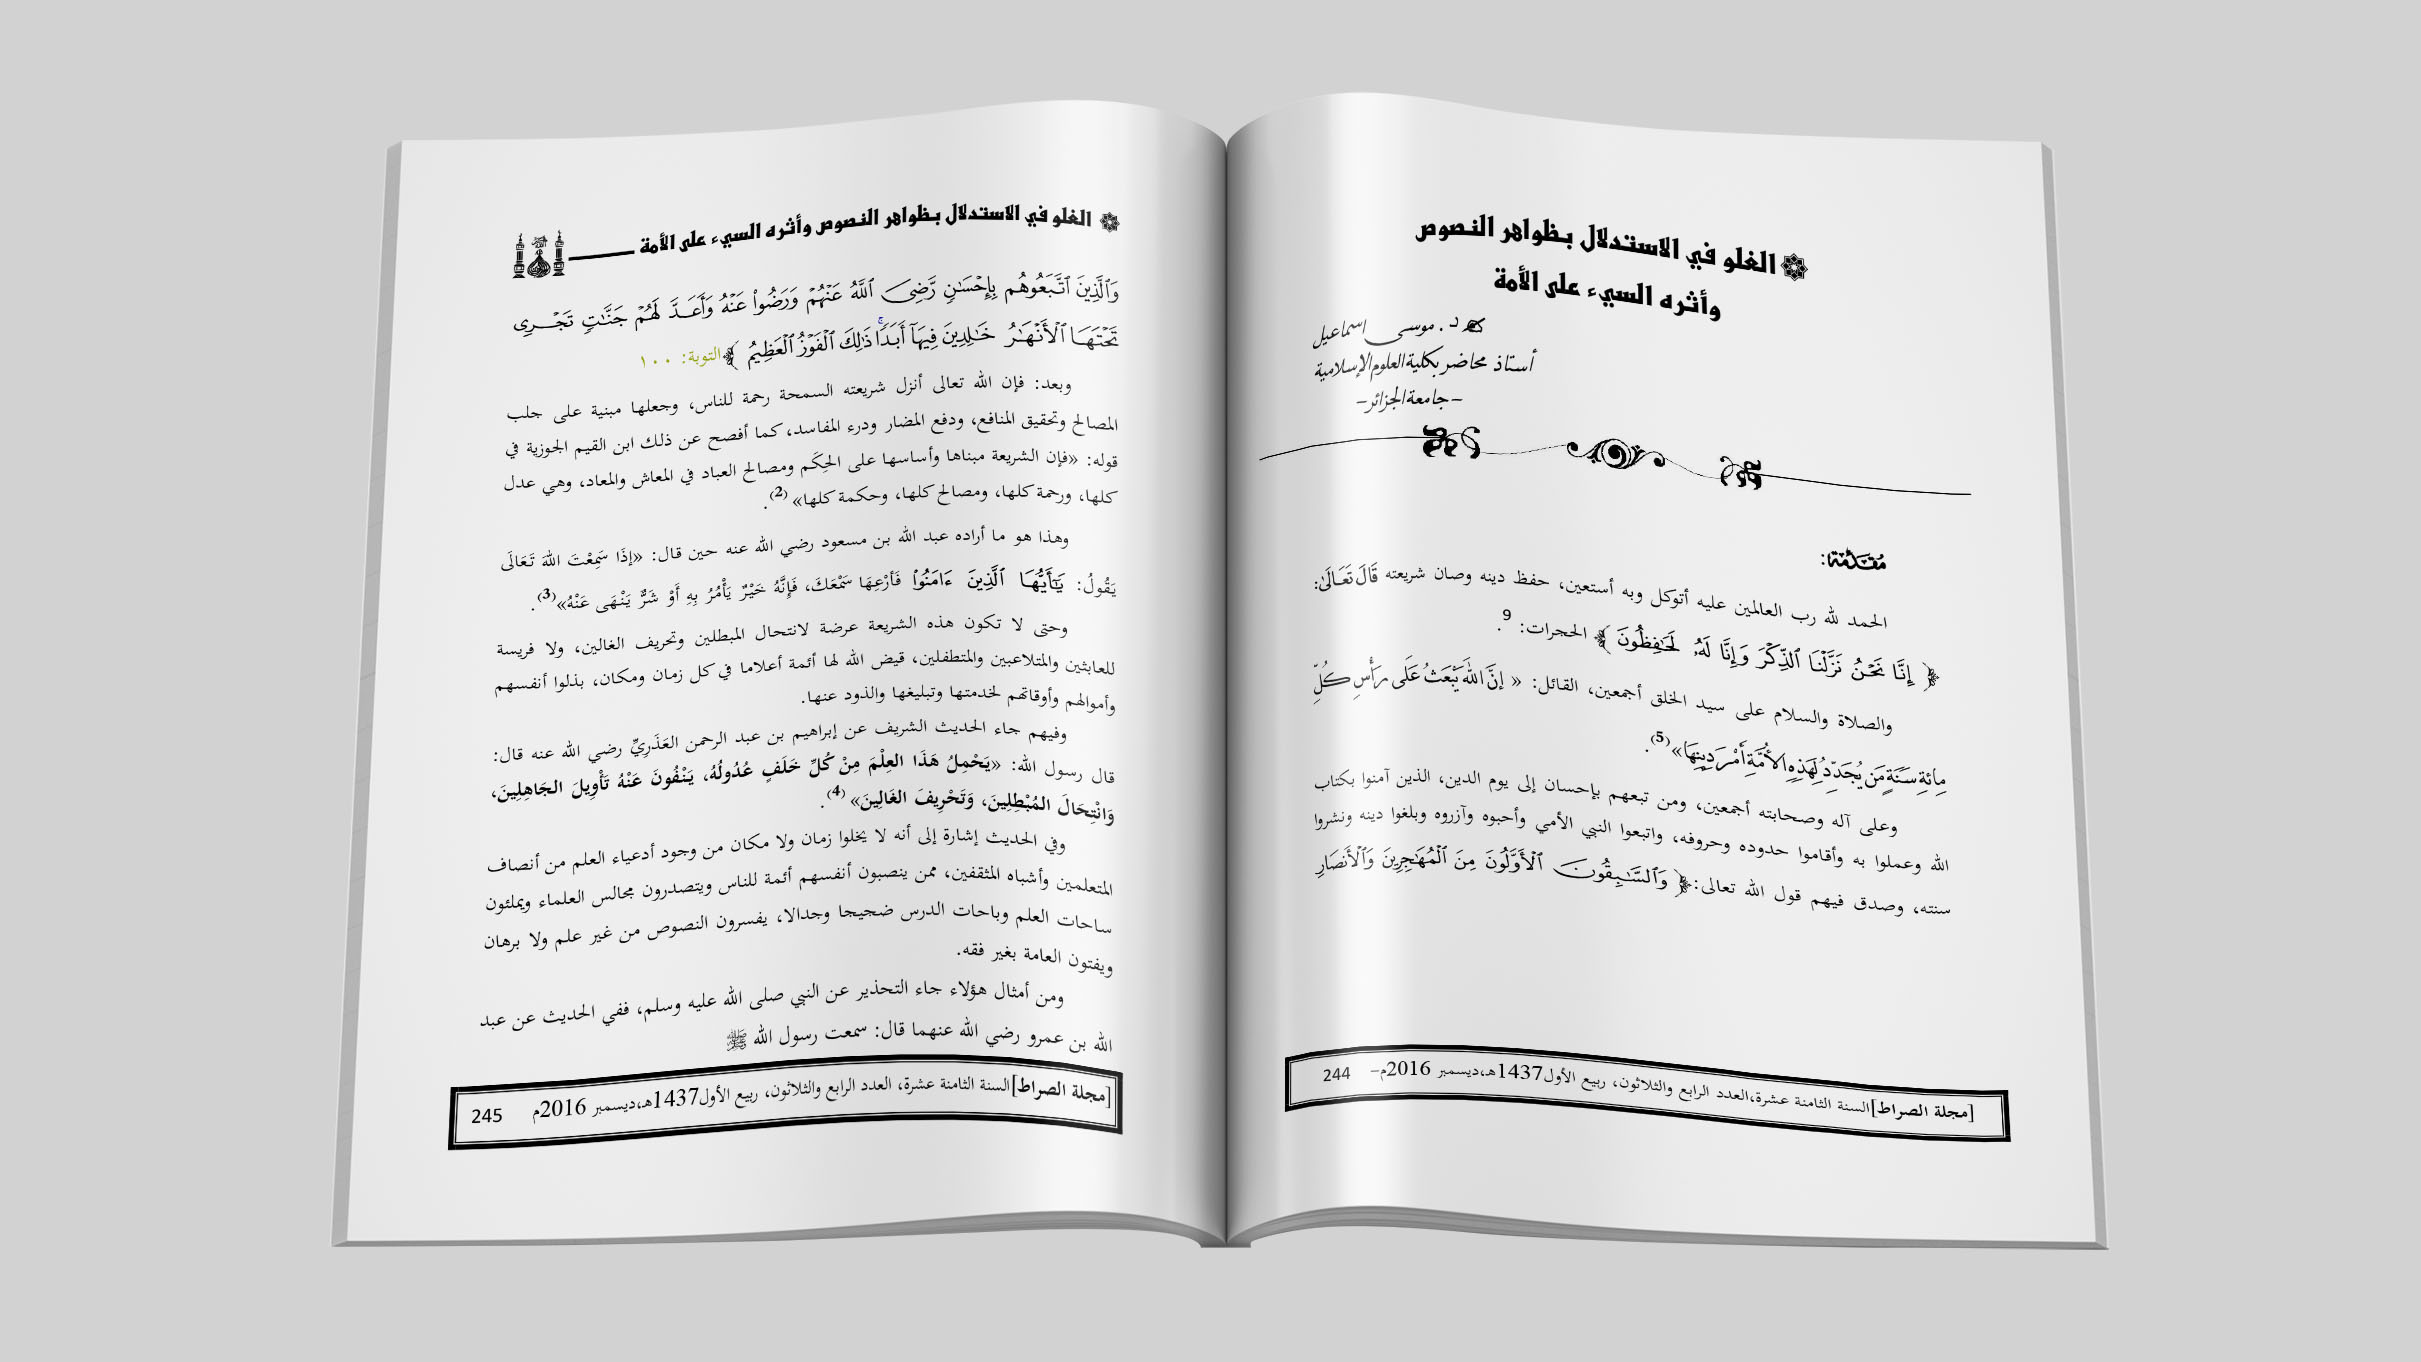 الغلو في الاستدلال بظواهر النصوص
وأثره السيء على الأمة
د. موسى إسماعيل
أستاذ محاضر بكلية العلوم الإسلامية
-جامعة الجزائر-
مُقدّمة:
الحمد لله رب العالمين عليه أتوكل وبه أستعين، حفظ دينه وصان شريعته قَالَ تَعَالَىٰ:
﴿ إِنَّا نَحْنُ نَزَّلْنَا ٱلذِّكْرَ وَإِنَّا لَهُۥ لَحَٰفِظُونَ ﴾ الحجرات: 9.
والصلاة والسلام على سيد الخلق أجمعين، القائل: « إِنَّ اللهَ يَبْعَثُ عَلَى رَأْسِ كُلِّ
مِائَةِ سَنَةٍ مَن يُجَدِّدُ لِهَذِهِ الأُمَّةِ أَمْرَ دِينِهَا»(5).
وعلى آله وصحابته أجمعين، ومن تبعهم بإحسان إلى يوم الدين، الذين آمنوا بكتاب
الله وعملوا به وأقاموا حدوده وحروفه، واتبعوا النبي الأمي وأحبوه وآزروه وبلغوا دينه ونشروا
سنته، وصدق فيهم قول الله تعالى:﴿ وَٱلسَّٰبِقُونَ ٱلْأَوَّلُونَ مِنَ ٱلْمُهَٰجِرِينَ وَٱلْأَنصَارِ
[مجلة الصراط]السنة الثامنة عشرة،العدد الرابع والثلاثون، ربيع الأول1437هـ،ديسمبر 2016م– 244
الغلو في الاستدلال بظواهر النصوص وأثره السيء على الأمة
وَٱلَّذِينَ ٱتَّبَعُوهُم بِإِحْسَٰنٍ رَّضِىَ ٱللَّهُ عَنْهُمْ وَرَضُوا۟ عَنْهُ وَأَعَدَّ لَهُمْ جَنَّٰتٍ تَجْرِى
تَحْتَهَا ٱلْأَنْهَٰرُ خَٰلِدِينَ فِيهَآ أَبَدًا ۚ ذَٰلِكَ ٱلْفَوْزُ ٱلْعَظِيمُ ﴾التوبة: ١٠٠
وبعد: فإن الله تعالى أنزل شريعته السمحة رحمة للناس، وجعلها مبنية على جلب
المصالح وتحقيق المنافع، ودفع المضار ودرء المفاسد، كما أفصح عن ذلك ابن القيم الجوزية في
قوله: «فإن الشريعة مبناها وأساسها على الحِكَم ومصالح العباد في المعاش والمعاد، وهي عدل
كلها، ورحمة كلها، ومصالح كلها، وحكمة كلها» (2).
وهذا هو ما أراده عبد الله بن مسعود رضي الله عنه حين قال: «إِذَا سَمِعْتَ اللهَ تَعَالَى
يَقُولُ: يَٰٓأَيُّهَا ٱلَّذِينَ ءَامَنُوا۟ فَأَرْعِهَا سَمْعَكَ، فَإِنَّهُ خَيْرٌ يَأْمُرُ بِهِ أَوْ شَرٌّ يَنْهَى عَنْهُ»(3).
وحتى لا تكون هذه الشريعة عرضة لانتحال المبطلين وتحريف الغالين، ولا فريسة
للعابثين والمتلاعبين والمتطفلين، قيض الله لها أئمة أعلاما في كل زمان ومكان، بذلوا أنفسهم
وأموالهم وأوقاتهم لخدمتها وتبليغها والذود عنها.
وفيهم جاء الحديث الشريف عن إبراهيم بن عبد الرحمن العَذَرِيِّ رضي الله عنه قال:
قال رسول الله: «يَحْمِلُ هَذَا العِلْمَ مِنْ كُلِّ خَلَفٍ عُدُولُهُ، يَنْفُونَ عَنْهُ تَأْوِيلَ الجَاهِلِينَ،
وَانْتِحَالَ المُبْطِلِينَ، وَتَحْرِيفَ الغَالِينَ» (4).
وفي الحديث إشارة إلى أنه لا يخلوا زمان ولا مكان من وجود أدعياء العلم من أنصاف
المتعلمين وأشباه المثقفين، ممن ينصبون أنفسهم أئمة للناس ويتصدرون مجالس العلماء ويملئون
ساحات العلم وباحات الدرس ضجيجا وجدالا، يفسرون النصوص من غير علم ولا برهان
ويفتون العامة بغير فقه.
ومن أمثال هؤلاء جاء التحذير عن النبي صلى الله عليه وسلم، ففي الحديث عن عبد
الله بن عمرو رضي الله عنهما قال: سمعت رسول الله ﷺ
[مجلة الصراط]السنة الثامنة عشرة، العدد الرابع والثلاثون، ربيع الأول1437هـ،ديسمبر 2016م 245